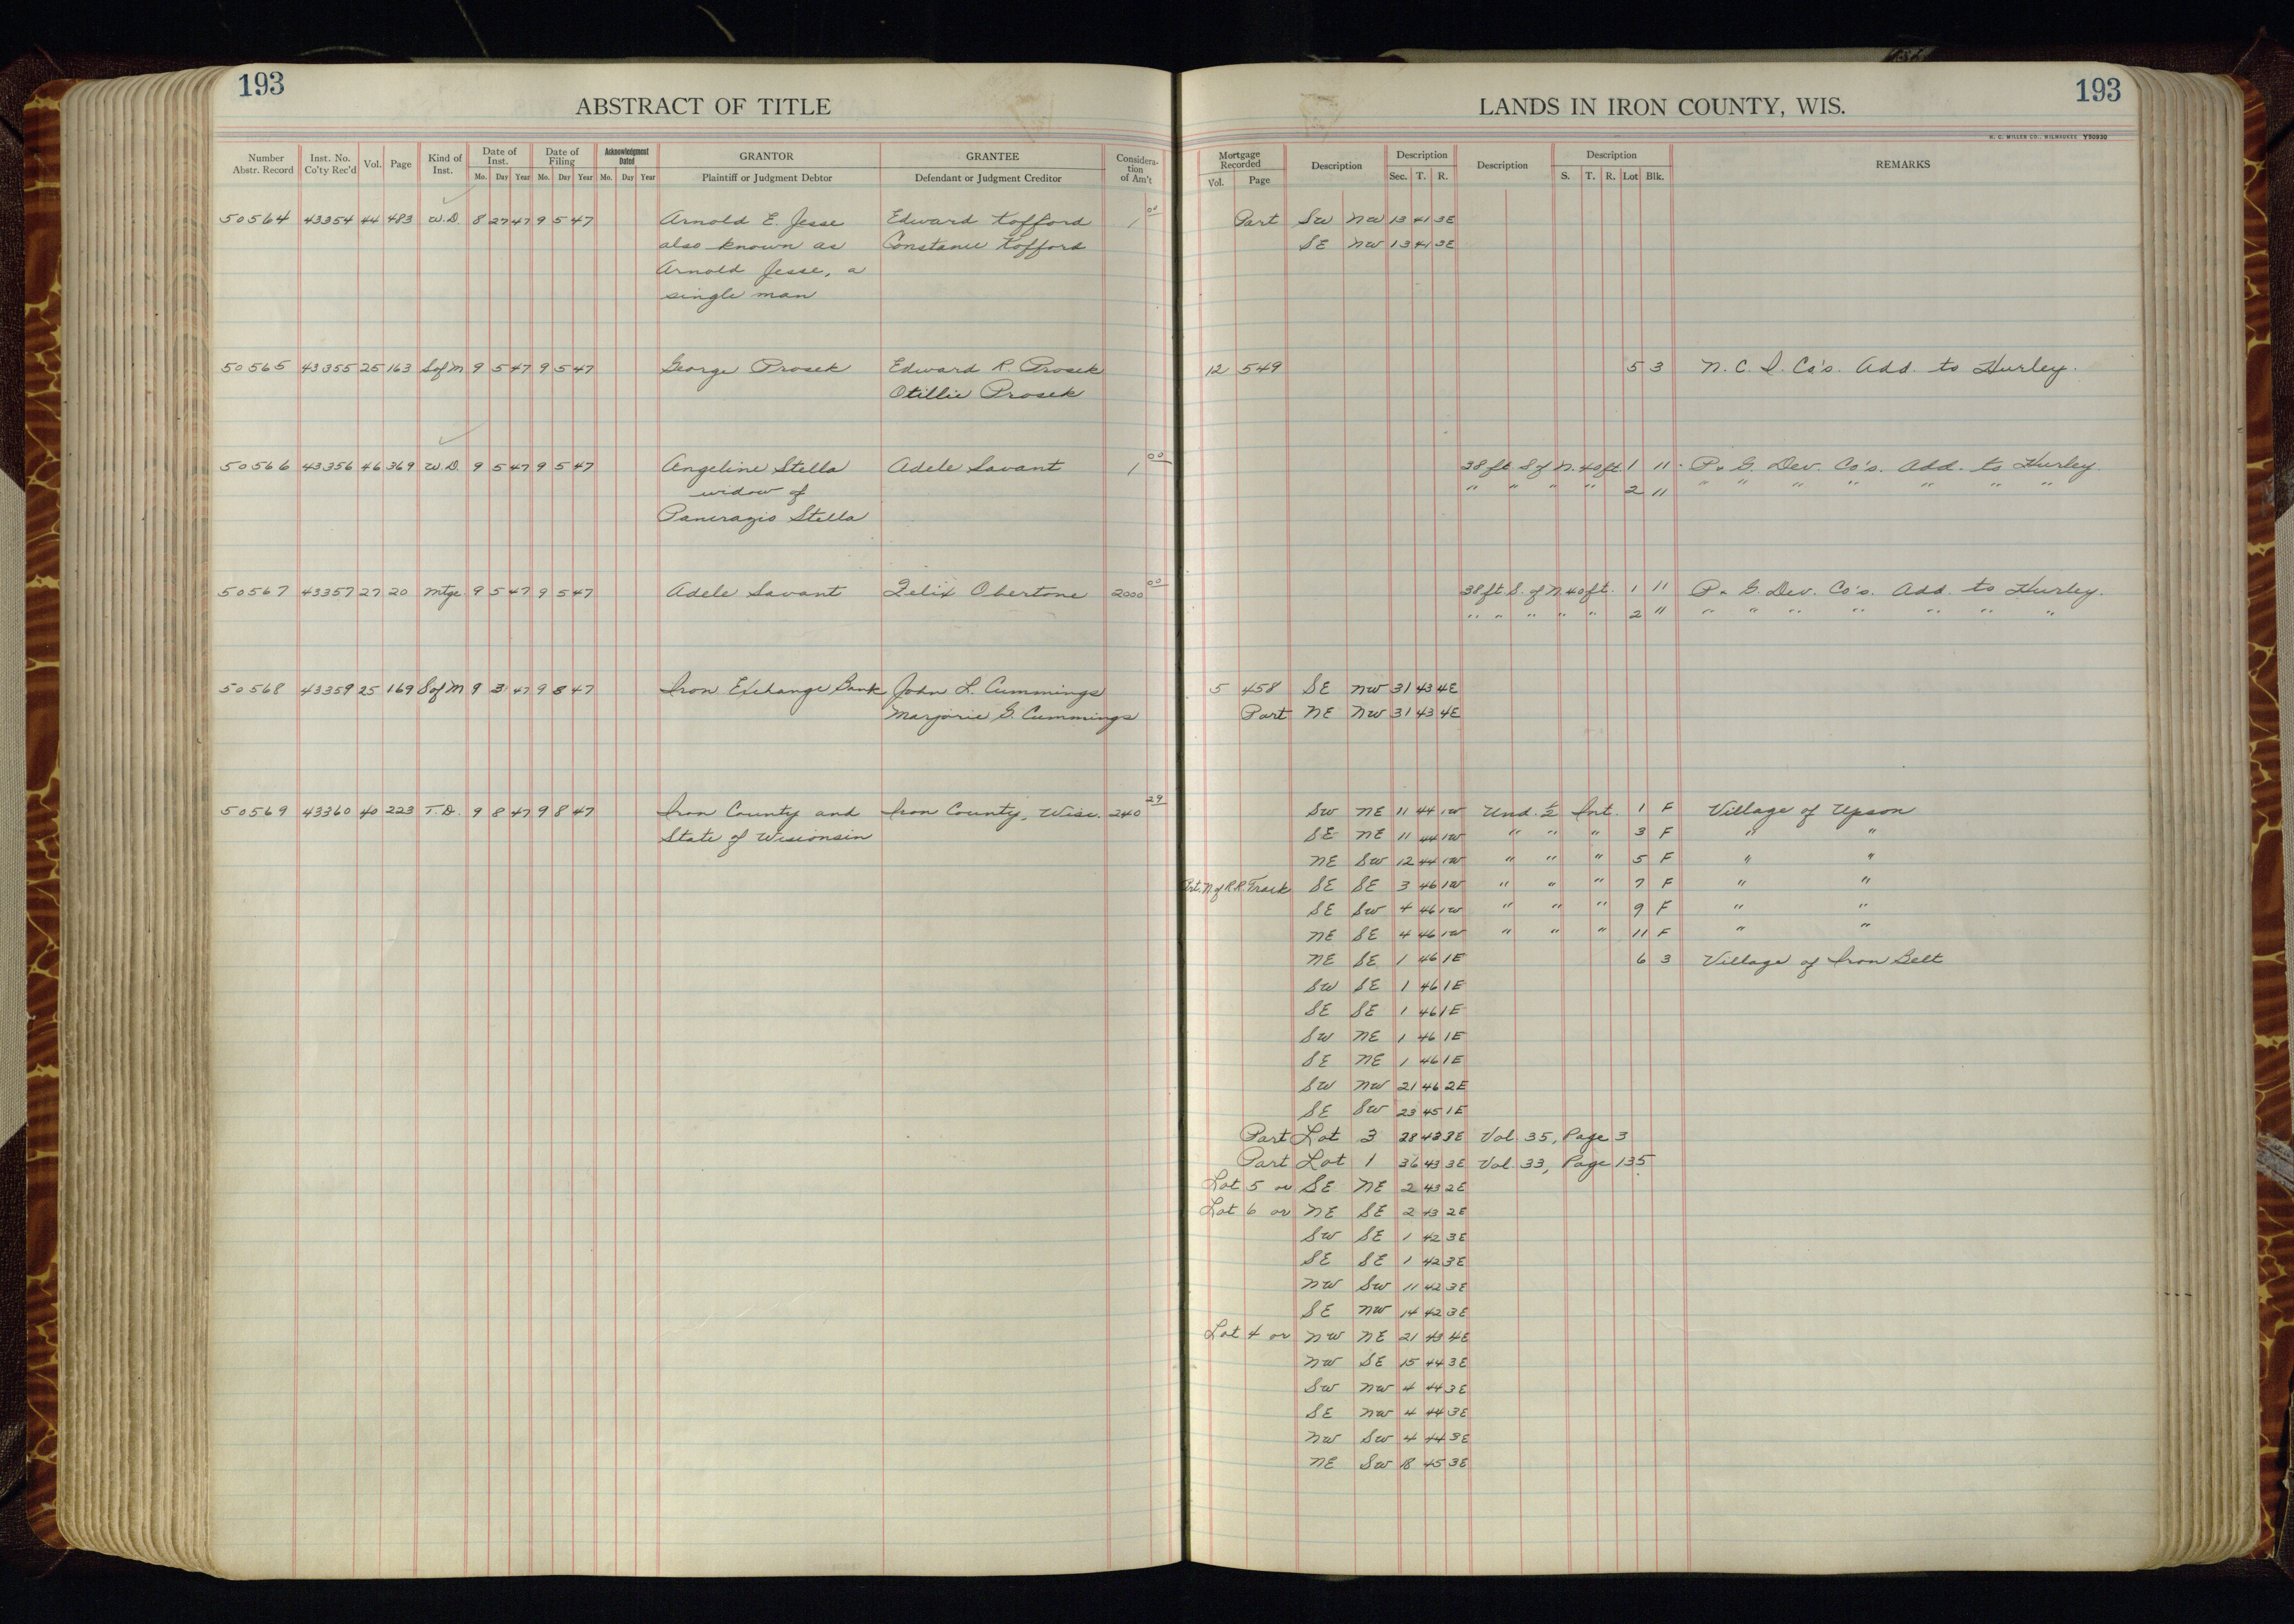 193
ABSTRACT OF TITLE
Number Abstr. Record Inst. No. Co'ty Rec'd Vol. Page Kind of Inst. Date of Inst. Mo. Day Year Date of Filing Mo. Day Year Acknowledgment Dated Mo. Day Year GRANTOR Plaintiff or Judgment Debtor GRANTEE Defendant or Judgment Creditor Considera- tion of Am't
50564 43354 44 483 W.D. 8 27 47 9 5 47 Arnold E. Jesse Edward Kofford 1 00
also known as Constance Kofford
Arnold Jesse, a
single man
50565 43355 25 163 S of M 9 5 47 9 5 47 George Prosek Edward R. Prosek
Otillie Prosek
50566 43356 46 369 W.D. 9 5 47 9 5 47 Angeline Stella Adele Savant 1 00
widow of
Pancrazio Stella
50567 43357 27 20 Mtge 9 5 47 9 5 47 Adele Savant Felix Obertone 2000 00
50568 43359 25 169 S of M 9 3 47 9 8 47 Iron Exchange Bank John L. Cummings
Marjorie G. Cummings
50569 43360 40 223 T.D. 9 8 47 9 8 47 Iron County and Iron County, Wisc. 240 29
State of Wisconsin
193
LANDS IN IRON COUNTY, WIS.
H. C. MILLER CO., MILWAUKEE Y50930
Mortgage Recorded Vol. Page Description Description Sec. T. R. Description Description S. T. R. Lot Blk. REMARKS
Part SW NW 13 41 3E
SE NW 13 41 3E
12 549 5 3 N. C. I. Co's. Add. to Hurley.
38 ft S of N. 40 ft. 1 11 P. & G. Dev. Co's. Add. to Hurley.
" " " " 2 11 " " " " " " "
38 ft. S. of N. 40 ft. 1 11 P. & G. Dev. Co's. Add. to Hurley.
" " " " " 2 " " " " " " " "
5 458 SE NW 31 43 4E
Part NE NW 31 43 4E
SW NE 11 44 1W Und. 1/2 Int. 1 F Village of Upson
SE NE 11 44 1W " " " 3 F " "
NE SW 12 44 1W " " " 5 F " "
Prt. N of R.R. Track SE SE 3 46 1W " " " 7 F " "
SE SW 4 46 1W " " " 9 F " "
NE SE 4 46 1W " " " 11 F " "
NE SE 1 46 1E 6 3 Village of Iron Belt
SW SE 1 46 1E
SE SE 1 46 1E
SW NE 1 46 1E
SE NE 1 46 1E
SW NW 21 46 2E
SE SW 23 45 1E
Part Lot 3 28 43 3E Vol. 35, Page 3
Part Lot 1 36 43 3E Vol. 33, Page 135
Lot 5 or SE NE 2 43 2E
Lot 6 or NE SE 2 43 2E
SW SE 1 42 3E
SE SE 1 42 3E
NW SW 11 42 3E
SE NW 14 42 3E
Lot 4 or NW NE 21 43 4E
NW SE 15 44 3E
SW NW 4 44 3E
SE NW 4 44 3E
NW SW 4 44 3E
NE SW 18 45 3E